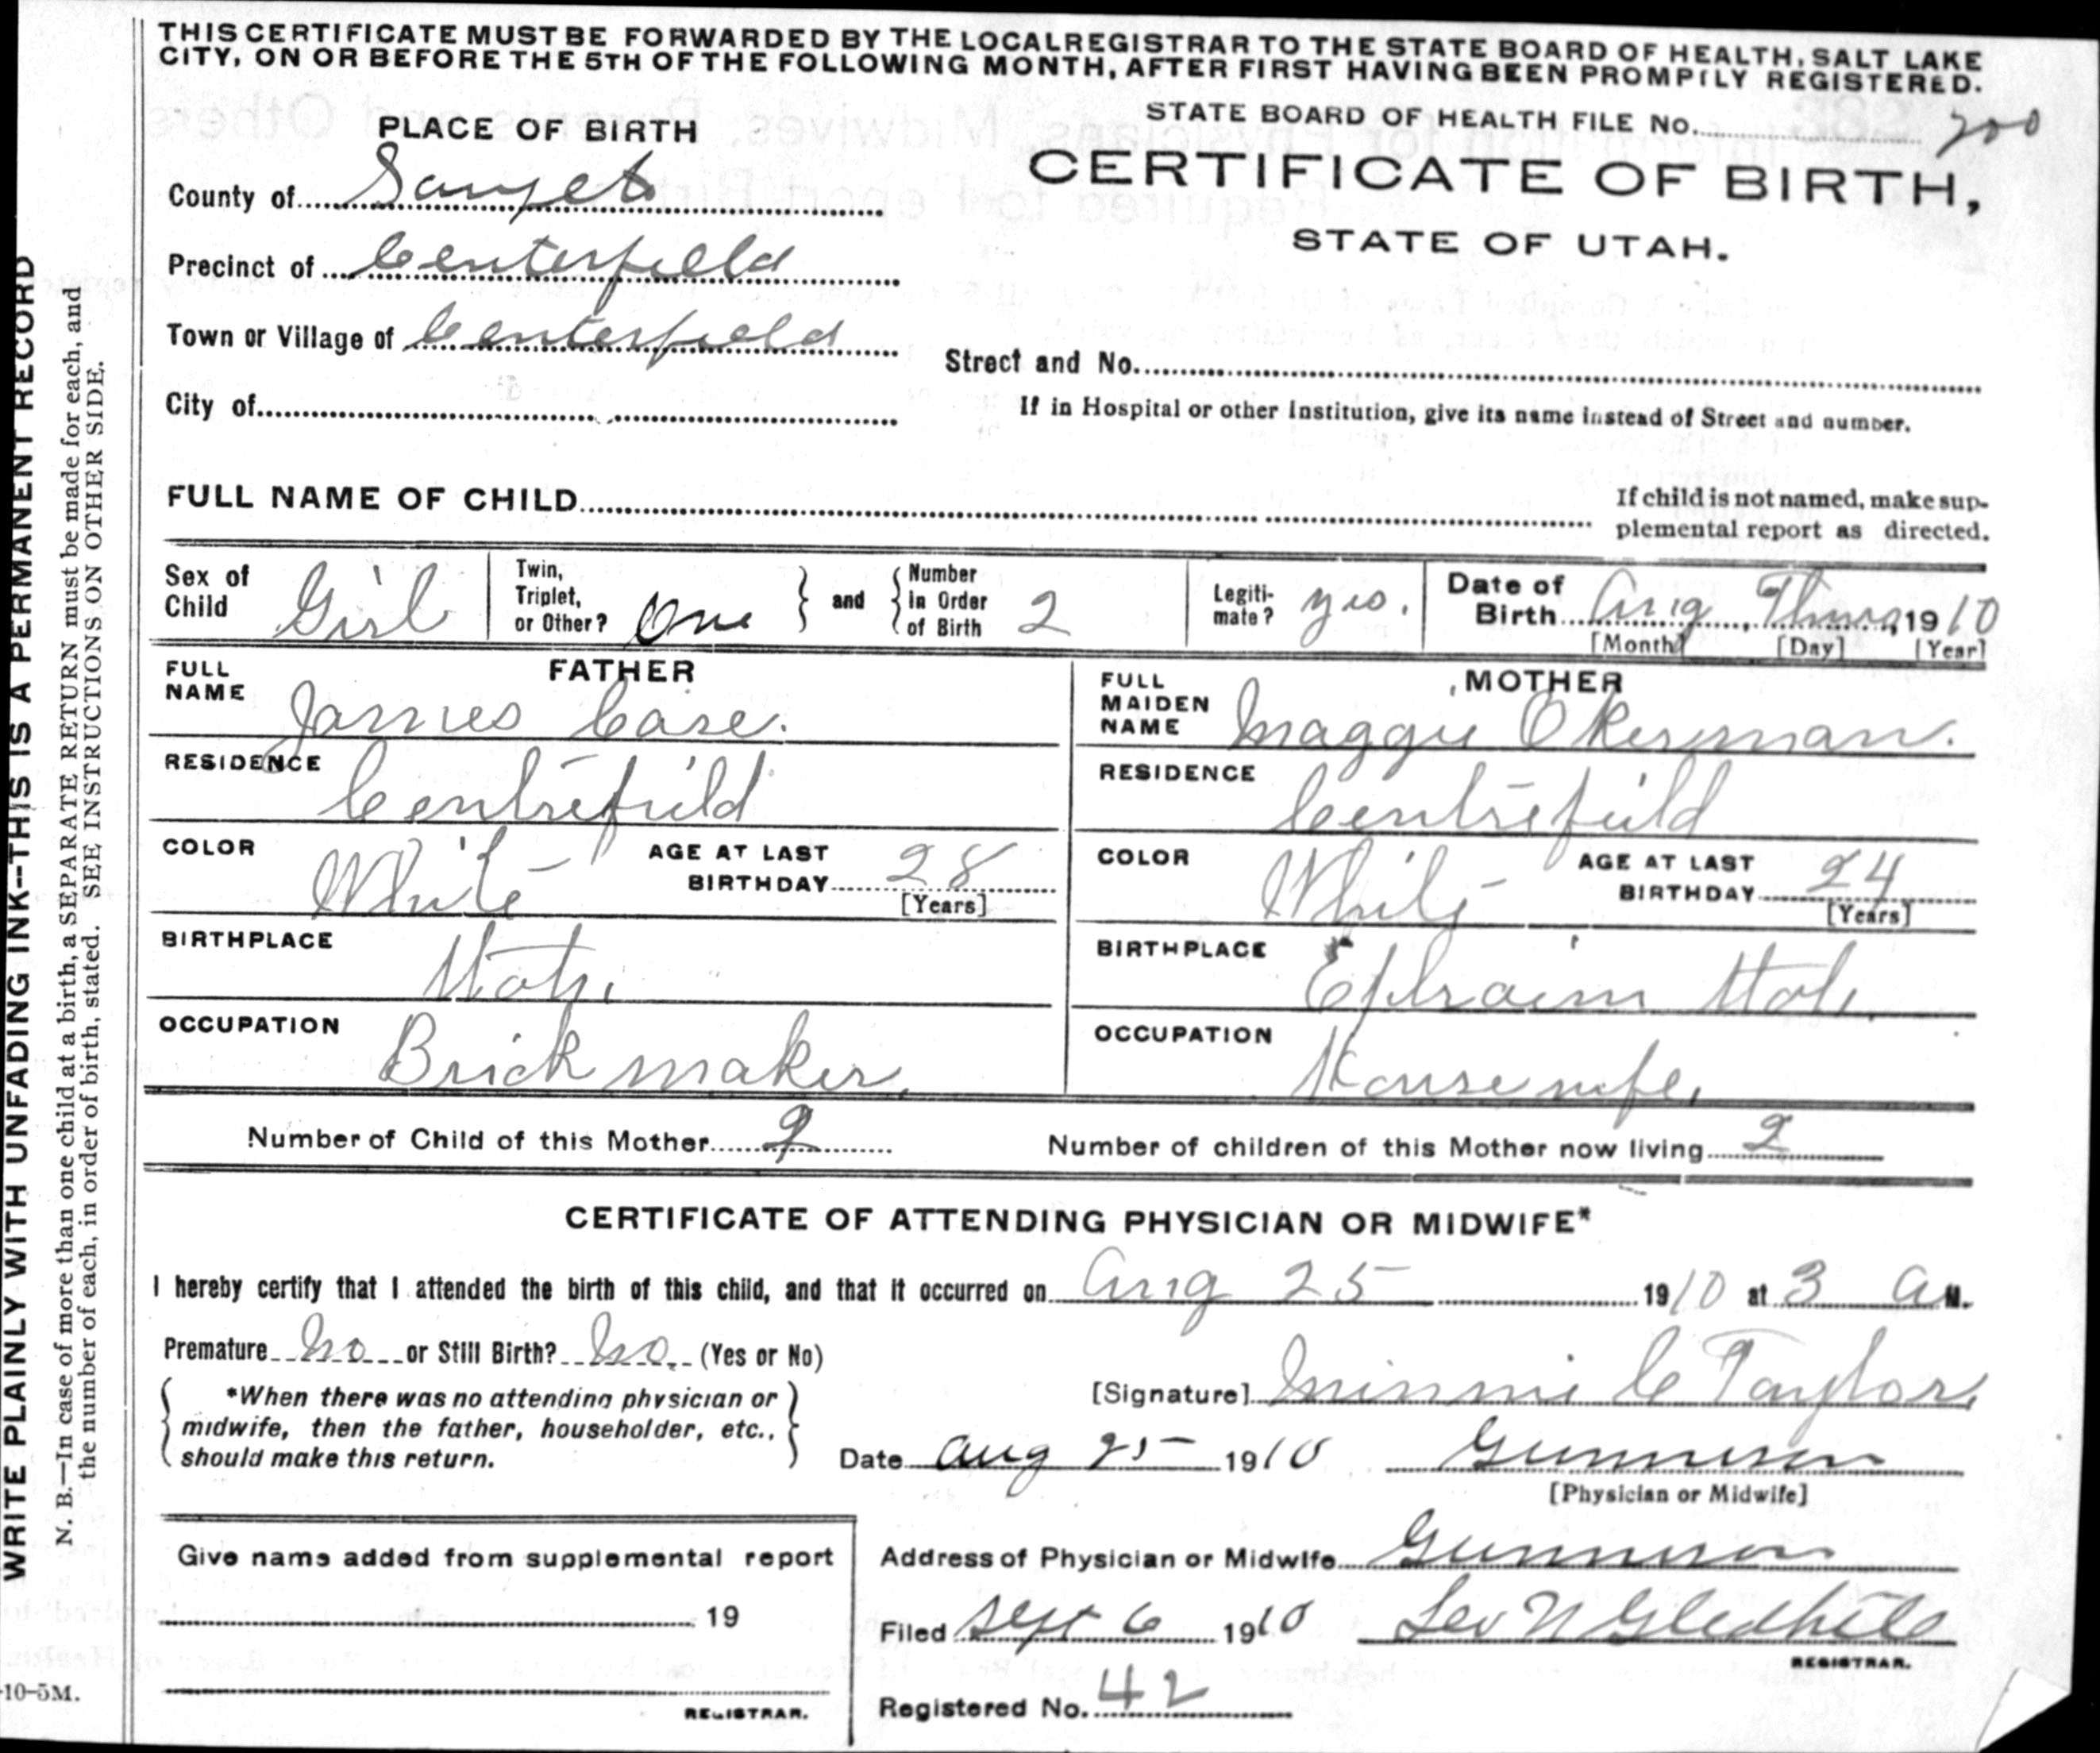 THIS CERTIFICATE MUST BE FORWARDED BY THE LOCAL REGISTRAR TO THE STATE BOARD OF HEALTH, SALT LAKE
CITY, ON OR BEFORE THE 5TH OF THE FOLLOWING MONTH, AFTER FIRST HAVING BEEN PROMPTLY REGISTERED.
STATE BOARD OF HEALTH FILE No. 200
PLACE OF BIRTH
CERTIFICATE OF BIRTH,
STATE OF UTAH.
County of Sanpete
Precinct of Centerfield
Town or Village of Centerfield
Street and No.
City of
If in Hospital or other Institution, give its name instead of Street and number.
FULL NAME OF CHILD
If child is not named, make sup-
plemental report as directed.
Sex of Child Girl
Twin, Triplet, or Other? One
and
Number in Order of Birth 2
Legiti-mate? yes.
Date of Birth Aug, Thurs, 1910
[Month] [Day] [Year]
FATHER
FULL NAME James Case.
RESIDENCE Centrefield
COLOR White
AGE AT LAST BIRTHDAY 28
[Years]
BIRTHPLACE Utah.
OCCUPATION Brick maker,
MOTHER
FULL MAIDEN NAME Maggie Okerman.
RESIDENCE Centrefield
COLOR White
AGE AT LAST BIRTHDAY 24
[Years]
BIRTHPLACE Ephraim Utah.
OCCUPATION Housewife,
Number of Child of this Mother 2
Number of children of this Mother now living 2
CERTIFICATE OF ATTENDING PHYSICIAN OR MIDWIFE*
I hereby certify that I attended the birth of this child, and that it occurred on Aug 25 1910 at 3 A M.
Premature No or Still Birth? No. (Yes or No)
*When there was no attending physician or
midwife, then the father, householder, etc.,
should make this return.
[Signature] Minnie C Taylor,
Date Aug 25 1910 Gunnison
[Physician or Midwife]
Give name added from supplemental report
19
REGISTRAR.
Address of Physician or Midwife Gunnison
Filed Sept 6 1910 Leo N Gledhill
REGISTRAR.
Registered No. 42
WRITE PLAINLY WITH UNFADING INK--THIS IS A PERMANENT RECORD
N. B.—In case of more than one child at a birth, a SEPARATE RETURN must be made for each, and
the number of each, in order of birth, stated. SEE INSTRUCTIONS ON OTHER SIDE.
-10-5M.